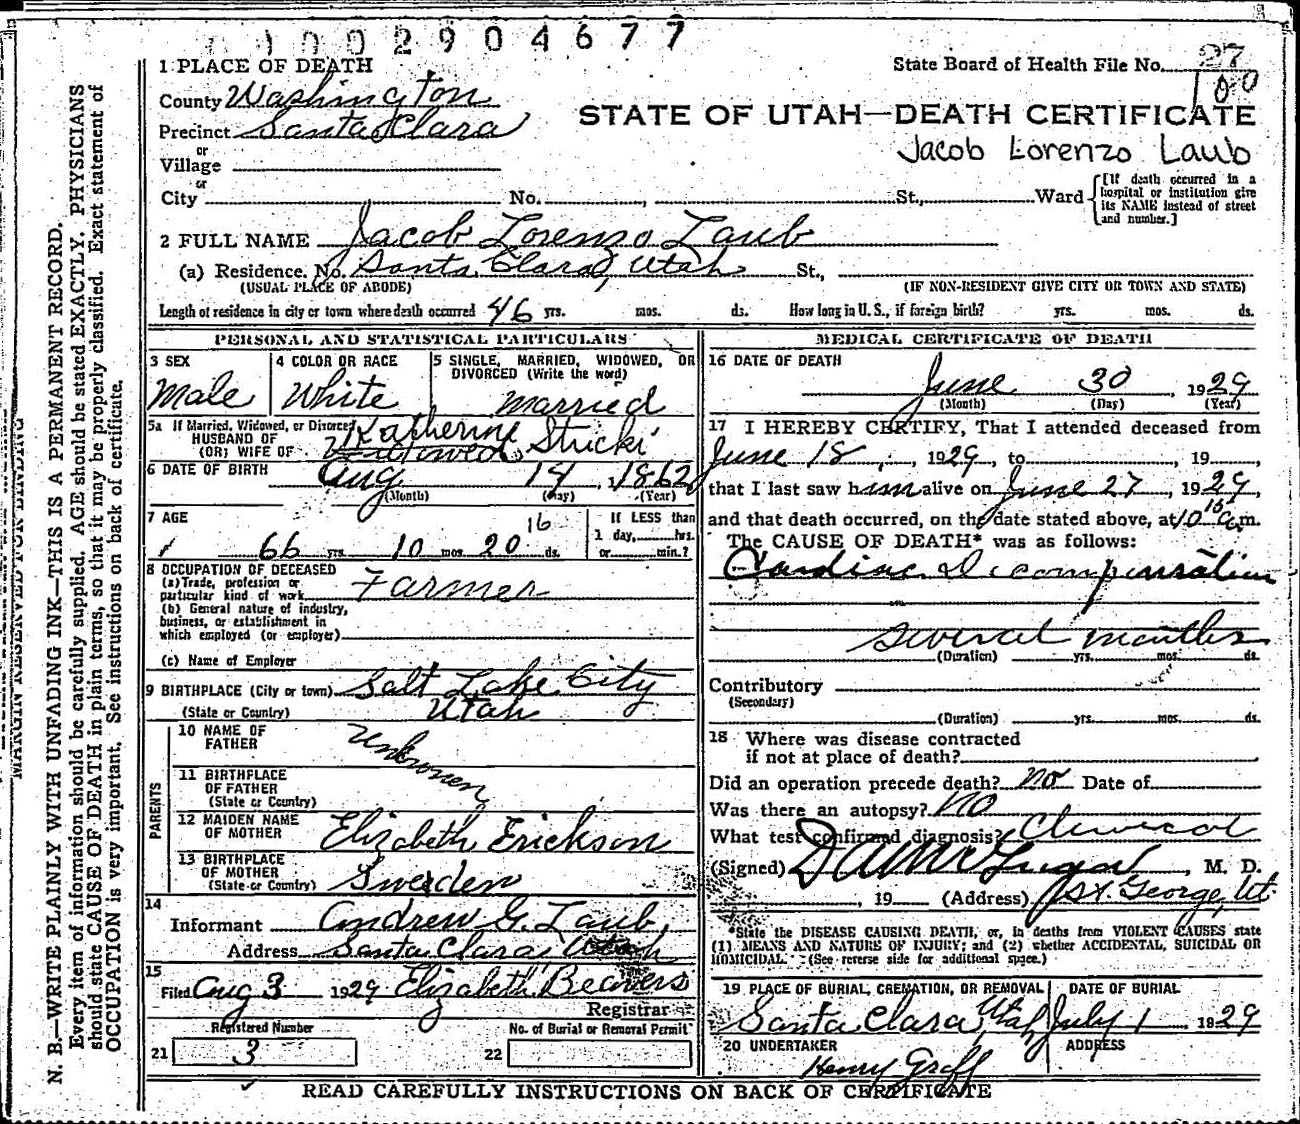 1 0 0 2 9 0 4 6 7 7
1 PLACE OF DEATH
State Board of Health File No. 27
100
County Washington
STATE OF UTAH—DEATH CERTIFICATE
Precinct Santa Clara
Jacob Lorenzo Laub
or
Village
or
City No. , St., Ward
[If death occurred in a
hospital or institution give
its NAME instead of street
and number.]
2 FULL NAME Jacob Lorenzo Laub
(a) Residence. No. Santa Clara, Utah St.,
(USUAL PLACE OF ABODE) (IF NON-RESIDENT GIVE CITY OR TOWN AND STATE)
Length of residence in city or town where death occurred 46 yrs. mos. ds. How long in U. S., if foreign birth? yrs. mos. ds.
PERSONAL AND STATISTICAL PARTICULARS
3 SEX
Male
4 COLOR OR RACE
White
5 SINGLE, MARRIED, WIDOWED, OR
DIVORCED (Write the word)
Married
5a If Married, Widowed, or Divorced
HUSBAND OF
(OR) WIFE OF
Katherine Stucki
6 DATE OF BIRTH
Aug 14, 1862
(Month) (Day) (Year)
7 AGE
66 yrs. 10 mos. 20 16 ds.
If LESS than
1 day, hrs.
or min.?
8 OCCUPATION OF DECEASED
(a) Trade, profession or
particular kind of work Farmer
(b) General nature of industry,
business, or establishment in
which employed (or employer)
(c) Name of Employer
9 BIRTHPLACE (City or town) Salt Lake City
(State or Country) Utah
PARENTS
10 NAME OF
FATHER
Unknown
11 BIRTHPLACE
OF FATHER
(State or Country)
12 MAIDEN NAME
OF MOTHER Elizabeth Erickson
13 BIRTHPLACE
OF MOTHER
(State or Country) Sweden
14
Informant Andrew G. Laub,
Address Santa Clara, Utah
15
Filed Aug 3 1929 Elizabeth Beavers
Registrar
Registered Number No. of Burial or Removal Permit
21 3 22
MEDICAL CERTIFICATE OF DEATH
16 DATE OF DEATH
June 30 1929
(Month) (Day) (Year)
17 I HEREBY CERTIFY, That I attended deceased from
June 18, 1929, to , 19 ,
that I last saw him alive on June 27, 1929,
and that death occurred, on the date stated above, at 10 10 a.m.
The CAUSE OF DEATH* was as follows:
Cardiac Decompensation
several months
(Duration) yrs. mos. ds.
Contributory
(Secondary)
(Duration) yrs. mos. ds.
18 Where was disease contracted
if not at place of death?
Did an operation precede death? no Date of
Was there an autopsy? NO
What test confirmed diagnosis?
(Signed) , M. D.
, 19 (Address) St. George, Ut.
*State the DISEASE CAUSING DEATH, or, in deaths from VIOLENT CAUSES state
(1) MEANS AND NATURE OF INJURY; and (2) whether ACCIDENTAL, SUICIDAL OR
HOMICIDAL. (See reverse side for additional space.)
19 PLACE OF BURIAL, CREMATION, OR REMOVAL
Santa Clara, Utah
DATE OF BURIAL
July 1 1929
20 UNDERTAKER
Henry Graff
ADDRESS
READ CAREFULLY INSTRUCTIONS ON BACK OF CERTIFICATE
MARGIN RESERVED FOR BINDING
N. B.—WRITE PLAINLY WITH UNFADING INK—THIS IS A PERMANENT RECORD.
Every item of information should be carefully supplied. AGE should be stated EXACTLY. PHYSICIANS
should state CAUSE OF DEATH in plain terms, so that it may be properly classified. Exact statement of
OCCUPATION is very important. See instructions on back of certificate.